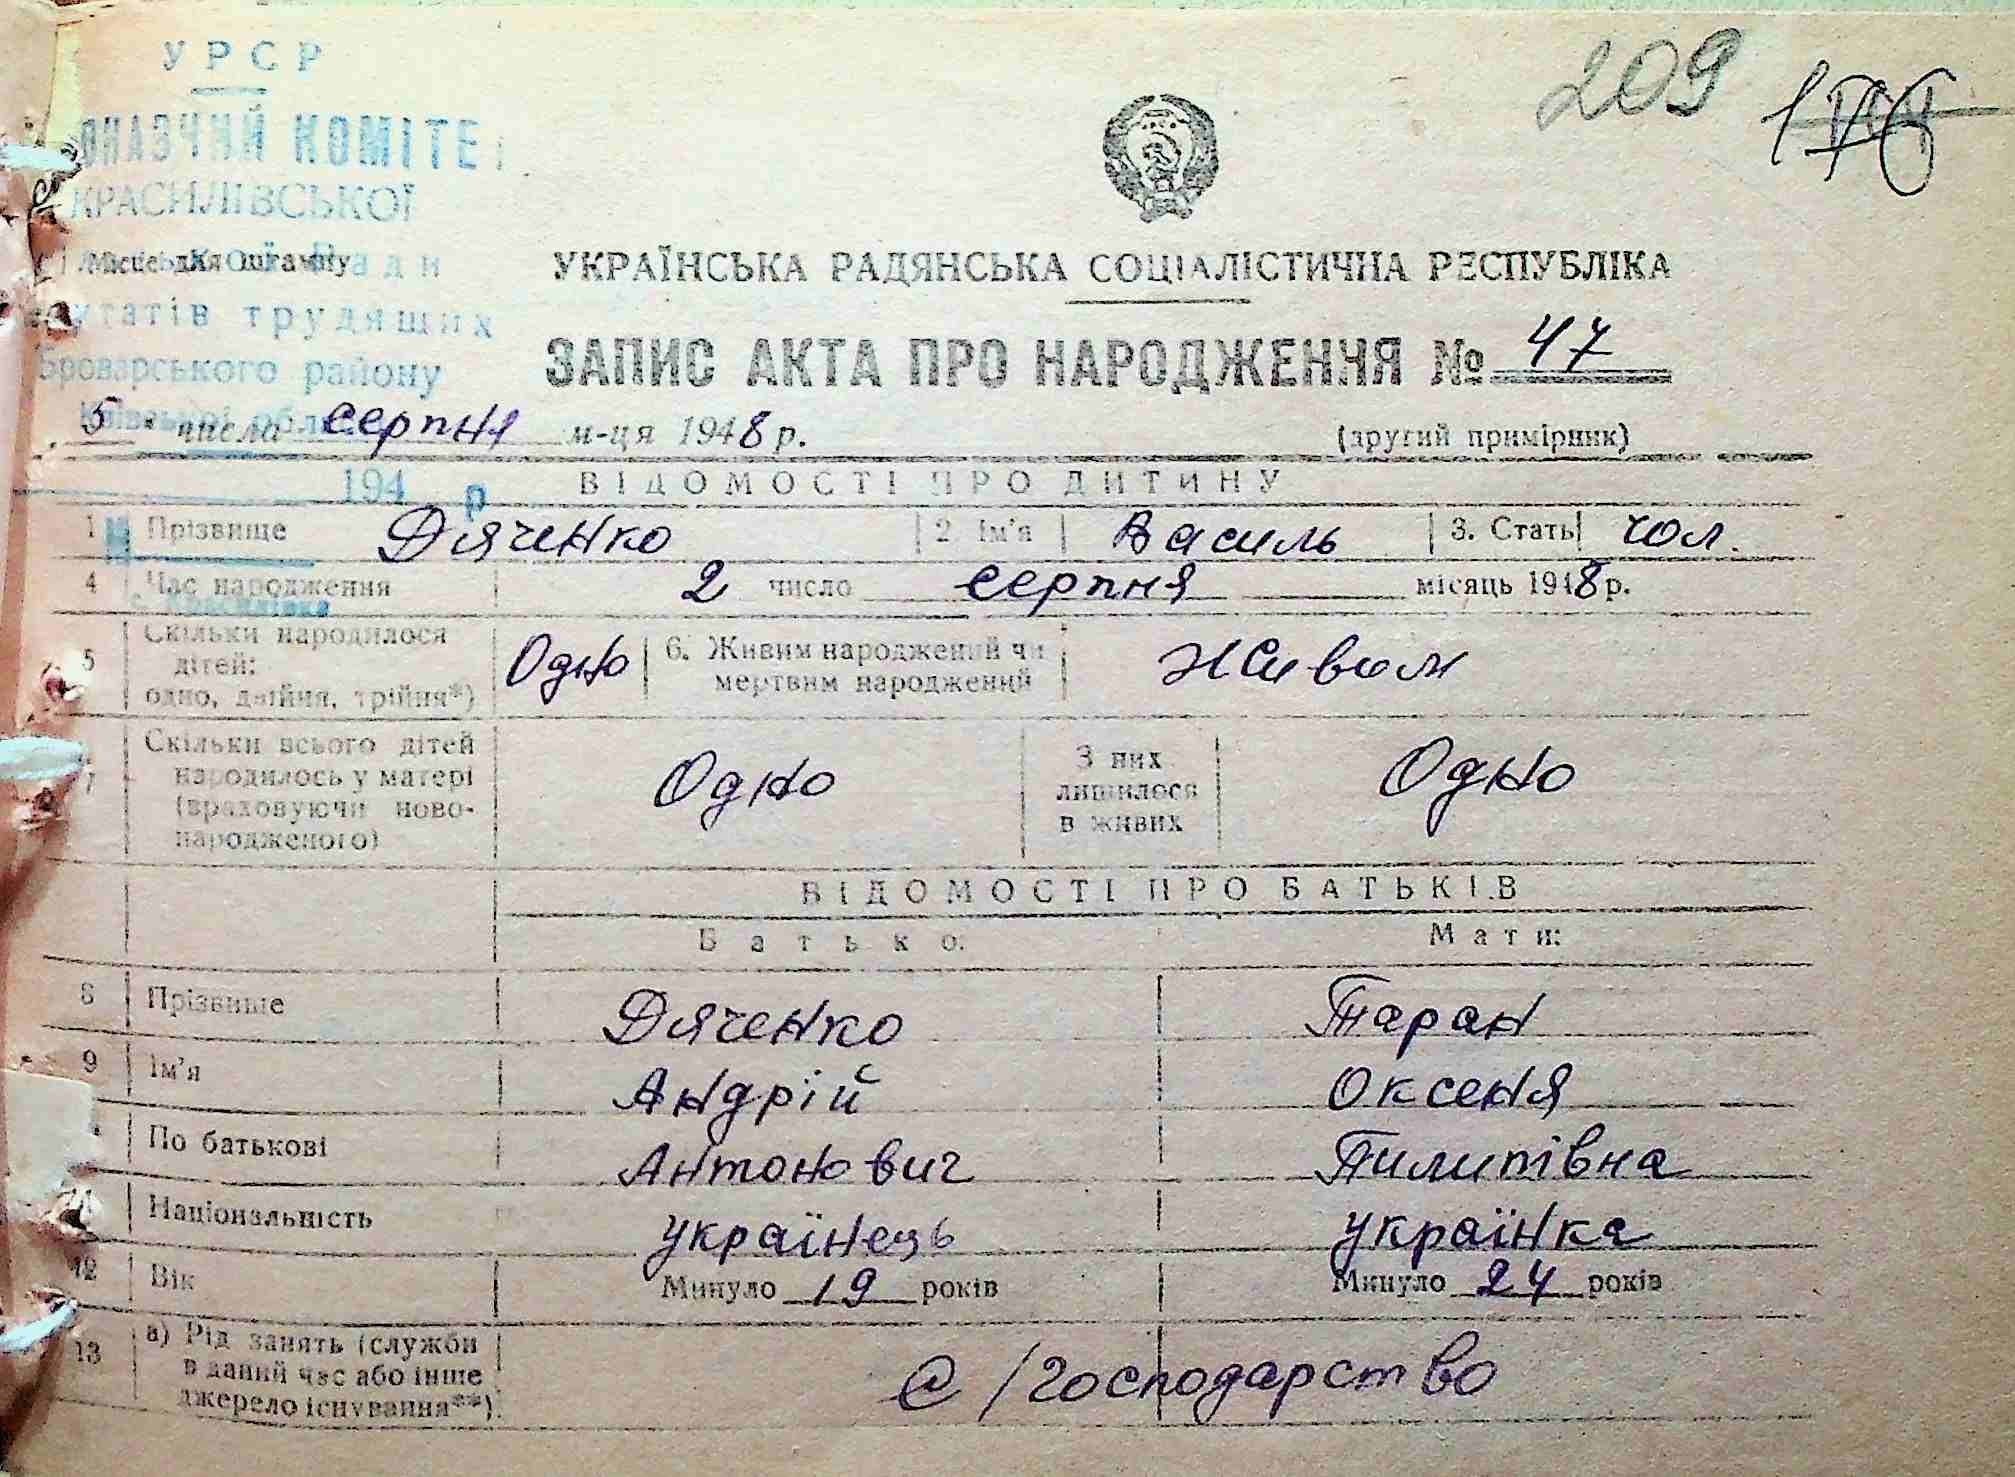 209 176
УРСР
ОНАЗЧИЙ КОМІТЕ
КРАСИЛІВСЬКОЇ
Місце для штампу
утатів трудящих
Броварського району
Київської обл
194 р
Красилівка
УКРАЇНСЬКА РАДЯНСЬКА СОЦІАЛІСТИЧНА РЕСПУБЛІКА
ЗАПИС АКТА ПРО НАРОДЖЕННЯ № 47
5 числа серпня м-ця 1948 р. (другий примірник)
ВІДОМОСТІ ПРО ДИТИНУ
1 Прізвище Дяченко 2 Ім'я Василь 3. Стать чол.
4 Час народження 2 число серпня місяць 1948 р.
5 Скільки народилося дітей: одно, двійня, трійня*) Одно 6. Живим народжений чи мертвим народжений Живим
7 Скільки всього дітей народилось у матері (враховуючи ново-народженого) Одно З них лишилося в живих Одно
ВІДОМОСТІ ПРО БАТЬКІВ
Батько: Мати:
8 Прізвище Дяченко Таран
9 Ім'я Андрій Оксеня
По батькові Антонович Пилипівна
11 Національність українець українка
12 Вік Минуло 19 років Минуло 24 років
13 а) Рід занять (служби в даний час або інше джерело існування**) с/господарство